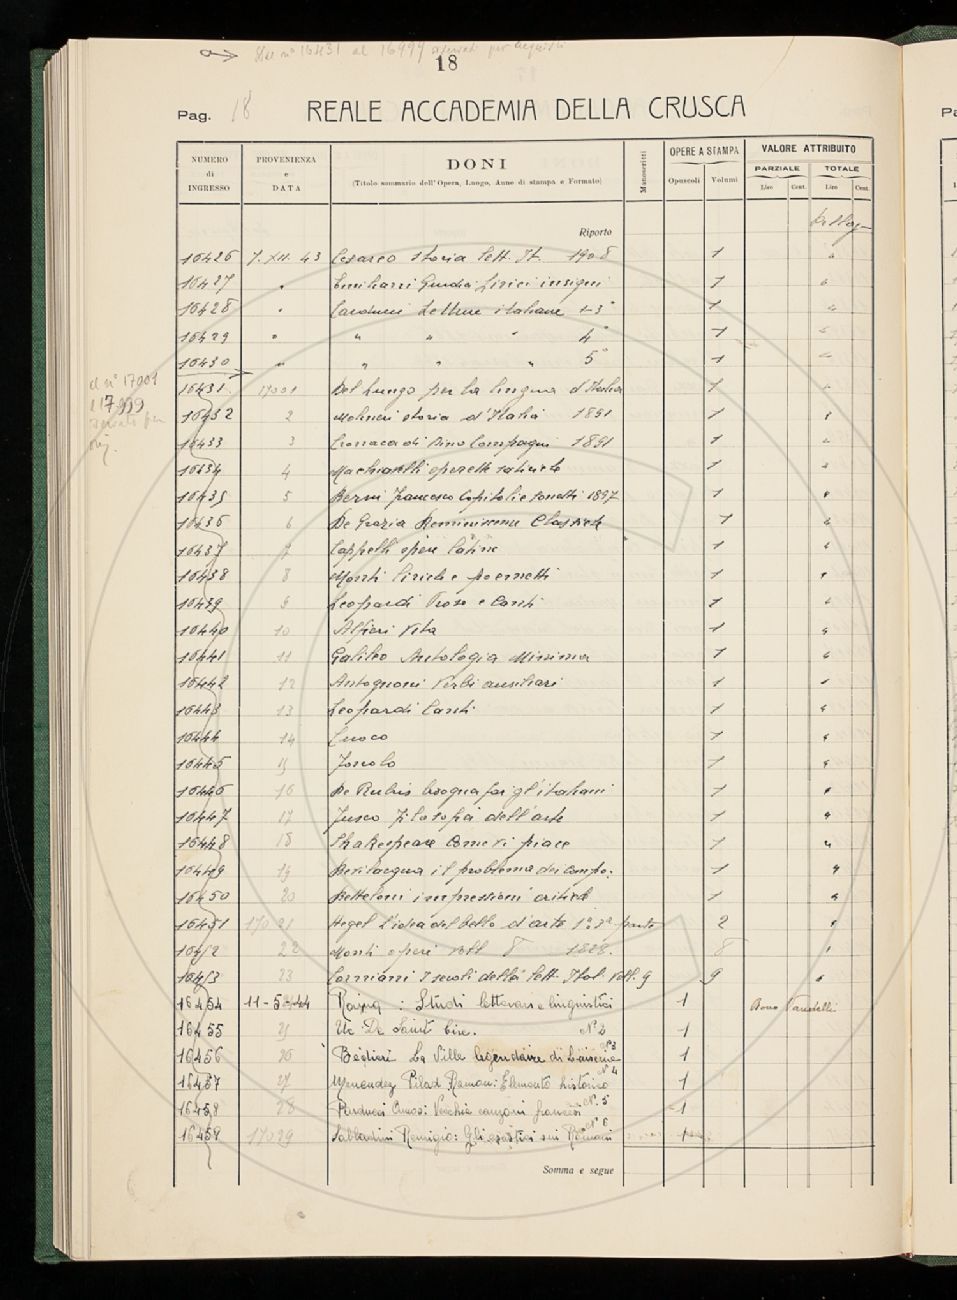 Dal n° 16431 al 16999 riservati per acquisti
18
Pag. 18 REALE ACCADEMIA DELLA CRUSCA
NUMERO di INGRESSO
PROVENIENZA e DATA
DONI
(Titolo sommario dell'Opera, Luogo, Anno di stampa e Formato)
Manoscritti
OPERE A STAMPA
Opuscoli Volumi
VALORE ATTRIBUITO
PARZIALE TOTALE
Lire Cent. Lire Cent.
Riporto
16426 7. XII. 43 Cesareo storia lett. It. 1908 1 "
16427 " Emiliani Giudici Lirici insigni 1 "
16428 " Carducci Letture italiane 1-3° 1 "
16429 " " " " 4° 1 "
16430 " " " " 5° 1 "
16431 17001 Del Lungo per la lingua d'Italia 1 "
16432 2 Molineri storia d'Italia 1891 1 "
16433 3 Cronaca di Dino Compagni 1891 1 "
16434 4 Machiavelli operette satiriche 1 "
16435 5 Berni Francesco Capitoli e sonetti 1897 1 "
16436 6 De Grazia Reminiscenze Classiche 1 "
16437 7 Cappelli opere latine 1 "
16438 8 Monti liriche e poemetti 1 "
16439 9 Leopardi Prose e Canti 1 "
16440 10 Alfieri Vita 1 "
16441 11 Galileo Antologia Minima 1 "
16442 12 Antognoni Verbi ausiliari 1 "
16443 13 Leopardi Canti 1 "
16444 14 Cuoco 1 "
16445 15 Foscolo 1 "
16446 16 De Rubris bisogna far gl'italiani 1 "
16447 17 Fusco Filosofia dell'arte 1 "
16448 18 Shakespeare Come vi piace 1 "
16449 19 Bevilacqua il problema dei compo. 1 "
16450 20 Betteloni impressioni critiche 1 "
16451 17021 Hegel L'idea del bello d'arte 1ª 2ª parte 2 "
1645/2 22 Monti opere voll 8 1828. 8 "
1645/3 23 Corniani I secoli della lett. Ital. voll. 9 9 "
16454 11-5-44 : Studi letterari e linguistici 1 Dono
16455 25 N° 2 1
16456 26 La Ville légendaire di N° 3 1
16457 27 Menendez Pidal Ramon: Elemento historico N° 4 1
16458 28 Parducci Amos: Vecchie canzoni francesi N° 5 1
16459 17029 Sabbadini Remigio: Gli sui Romani N° 6 1
Somma e segue
el n° 17001
al 17999
riservati per